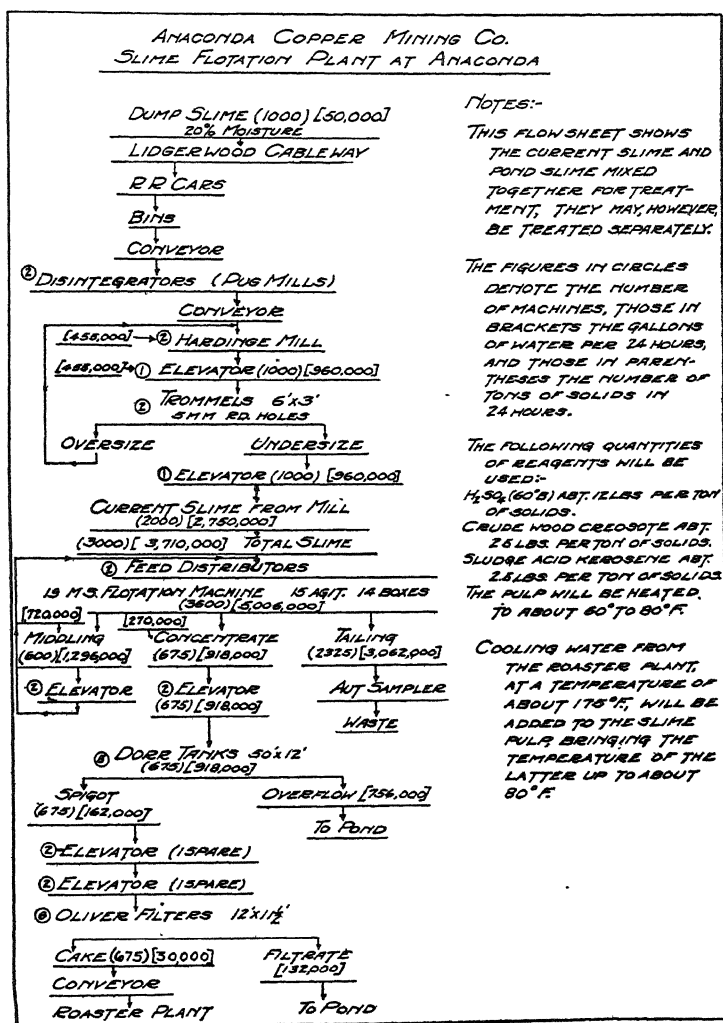 ANACONDA COPPER MINING CO.
SLIME FLOTATION PLANT AT ANACONDA
DUMP SLIME (1000) [50,000]
20% MOISTURE
LIDGERWOOD CABLEWAY
R R CARS
BINS
CONVEYOR
② DISINTEGRATORS (PUG MILLS)
CONVEYOR
[455,000] ② HARDINGE MILL
[455,000] ① ELEVATOR (1000) [960,000]
② TROMMELS 6'x3'
5 MM RD. HOLES
OVERSIZE UNDERSIZE
① ELEVATOR (1000) [960,000]
CURRENT SLIME FROM MILL
(2000) [2,750,000]
(3000) [3,710,000] TOTAL SLIME
② FEED DISTRIBUTORS
13 M.S. FLOTATION MACHINE 15 AGIT. 14 BOXES
(3600) [5,006,000]
[720,000] [270,000]
MIDDLING CONCENTRATE TAILING
(600) [1,296,000] (675) [918,000] (2325) [3,062,000]
② ELEVATOR ② ELEVATOR AUT SAMPLER
(675) [918,000]
WASTE
DORR TANKS 50'x12'
(675) [918,000]
SPIGOT OVERFLOW [756,000]
(675) [162,000]
TO POND
② ELEVATOR (1 SPARE)
② ELEVATOR (1 SPARE)
OLIVER FILTERS 12'x11½'
CAKE (675) [30,000] FILTRATE
[132,000]
CONVEYOR
ROASTER PLANT TO POND
NOTES:-
THIS FLOW SHEET SHOWS
THE CURRENT SLIME AND
POND SLIME MIXED
TOGETHER FOR TREAT-
MENT, THEY MAY, HOWEVER,
BE TREATED SEPARATELY.
THE FIGURES IN CIRCLES
DENOTE THE NUMBER
OF MACHINES, THOSE IN
BRACKETS THE GALLONS
OF WATER PER 24 HOURS,
AND THOSE IN PAREN-
THESES THE NUMBER OF
TONS OF SOLIDS IN
24 HOURS.
THE FOLLOWING QUANTITIES
OF REAGENTS WILL BE
USED:-
H₂SO₄ (60°B) ABT. 12 LBS PER TON
OF SOLIDS.
CRUDE WOOD CREOSOTE ABT.
2.5 LBS. PER TON OF SOLIDS.
SLUDGE ACID KEROSENE ABT.
2.5 LBS. PER TON OF SOLIDS.
THE PULP WILL BE HEATED
TO ABOUT 60° TO 80°F.
COOLING WATER FROM
THE ROASTER PLANT,
AT A TEMPERATURE OF
ABOUT 175°F, WILL BE
ADDED TO THE SLIME
PULP, BRINGING THE
TEMPERATURE OF THE
LATTER UP TO ABOUT
80°F.